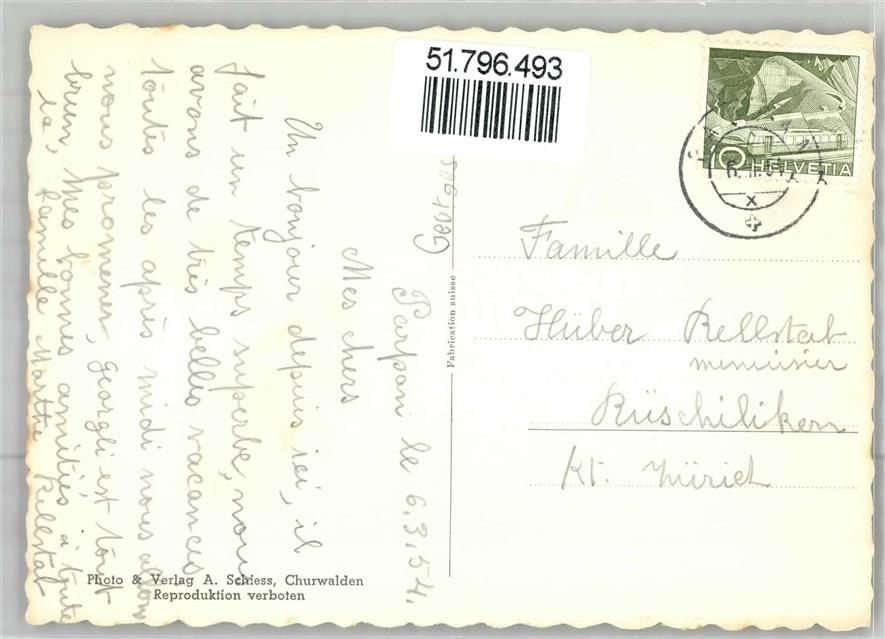 51.796.493
10 HELVETIA
Parpan le 6.3.54.
Mes chers
Un bonjour depuis ici, il
fait un temps superbe, nous
avons de très belles vacances
toutes les après midi nous allons
nous promener, georgli est tout
brun, Mes bonnes amitiés à toute
la famille Marthe Rellstab
Georges
Fabrication suisse
Famille
Hüber Rellstab
menuisier
Rüschiliken
Kt. Zürich
Photo & Verlag A. Schiess, Churwalden
Reproduktion verboten